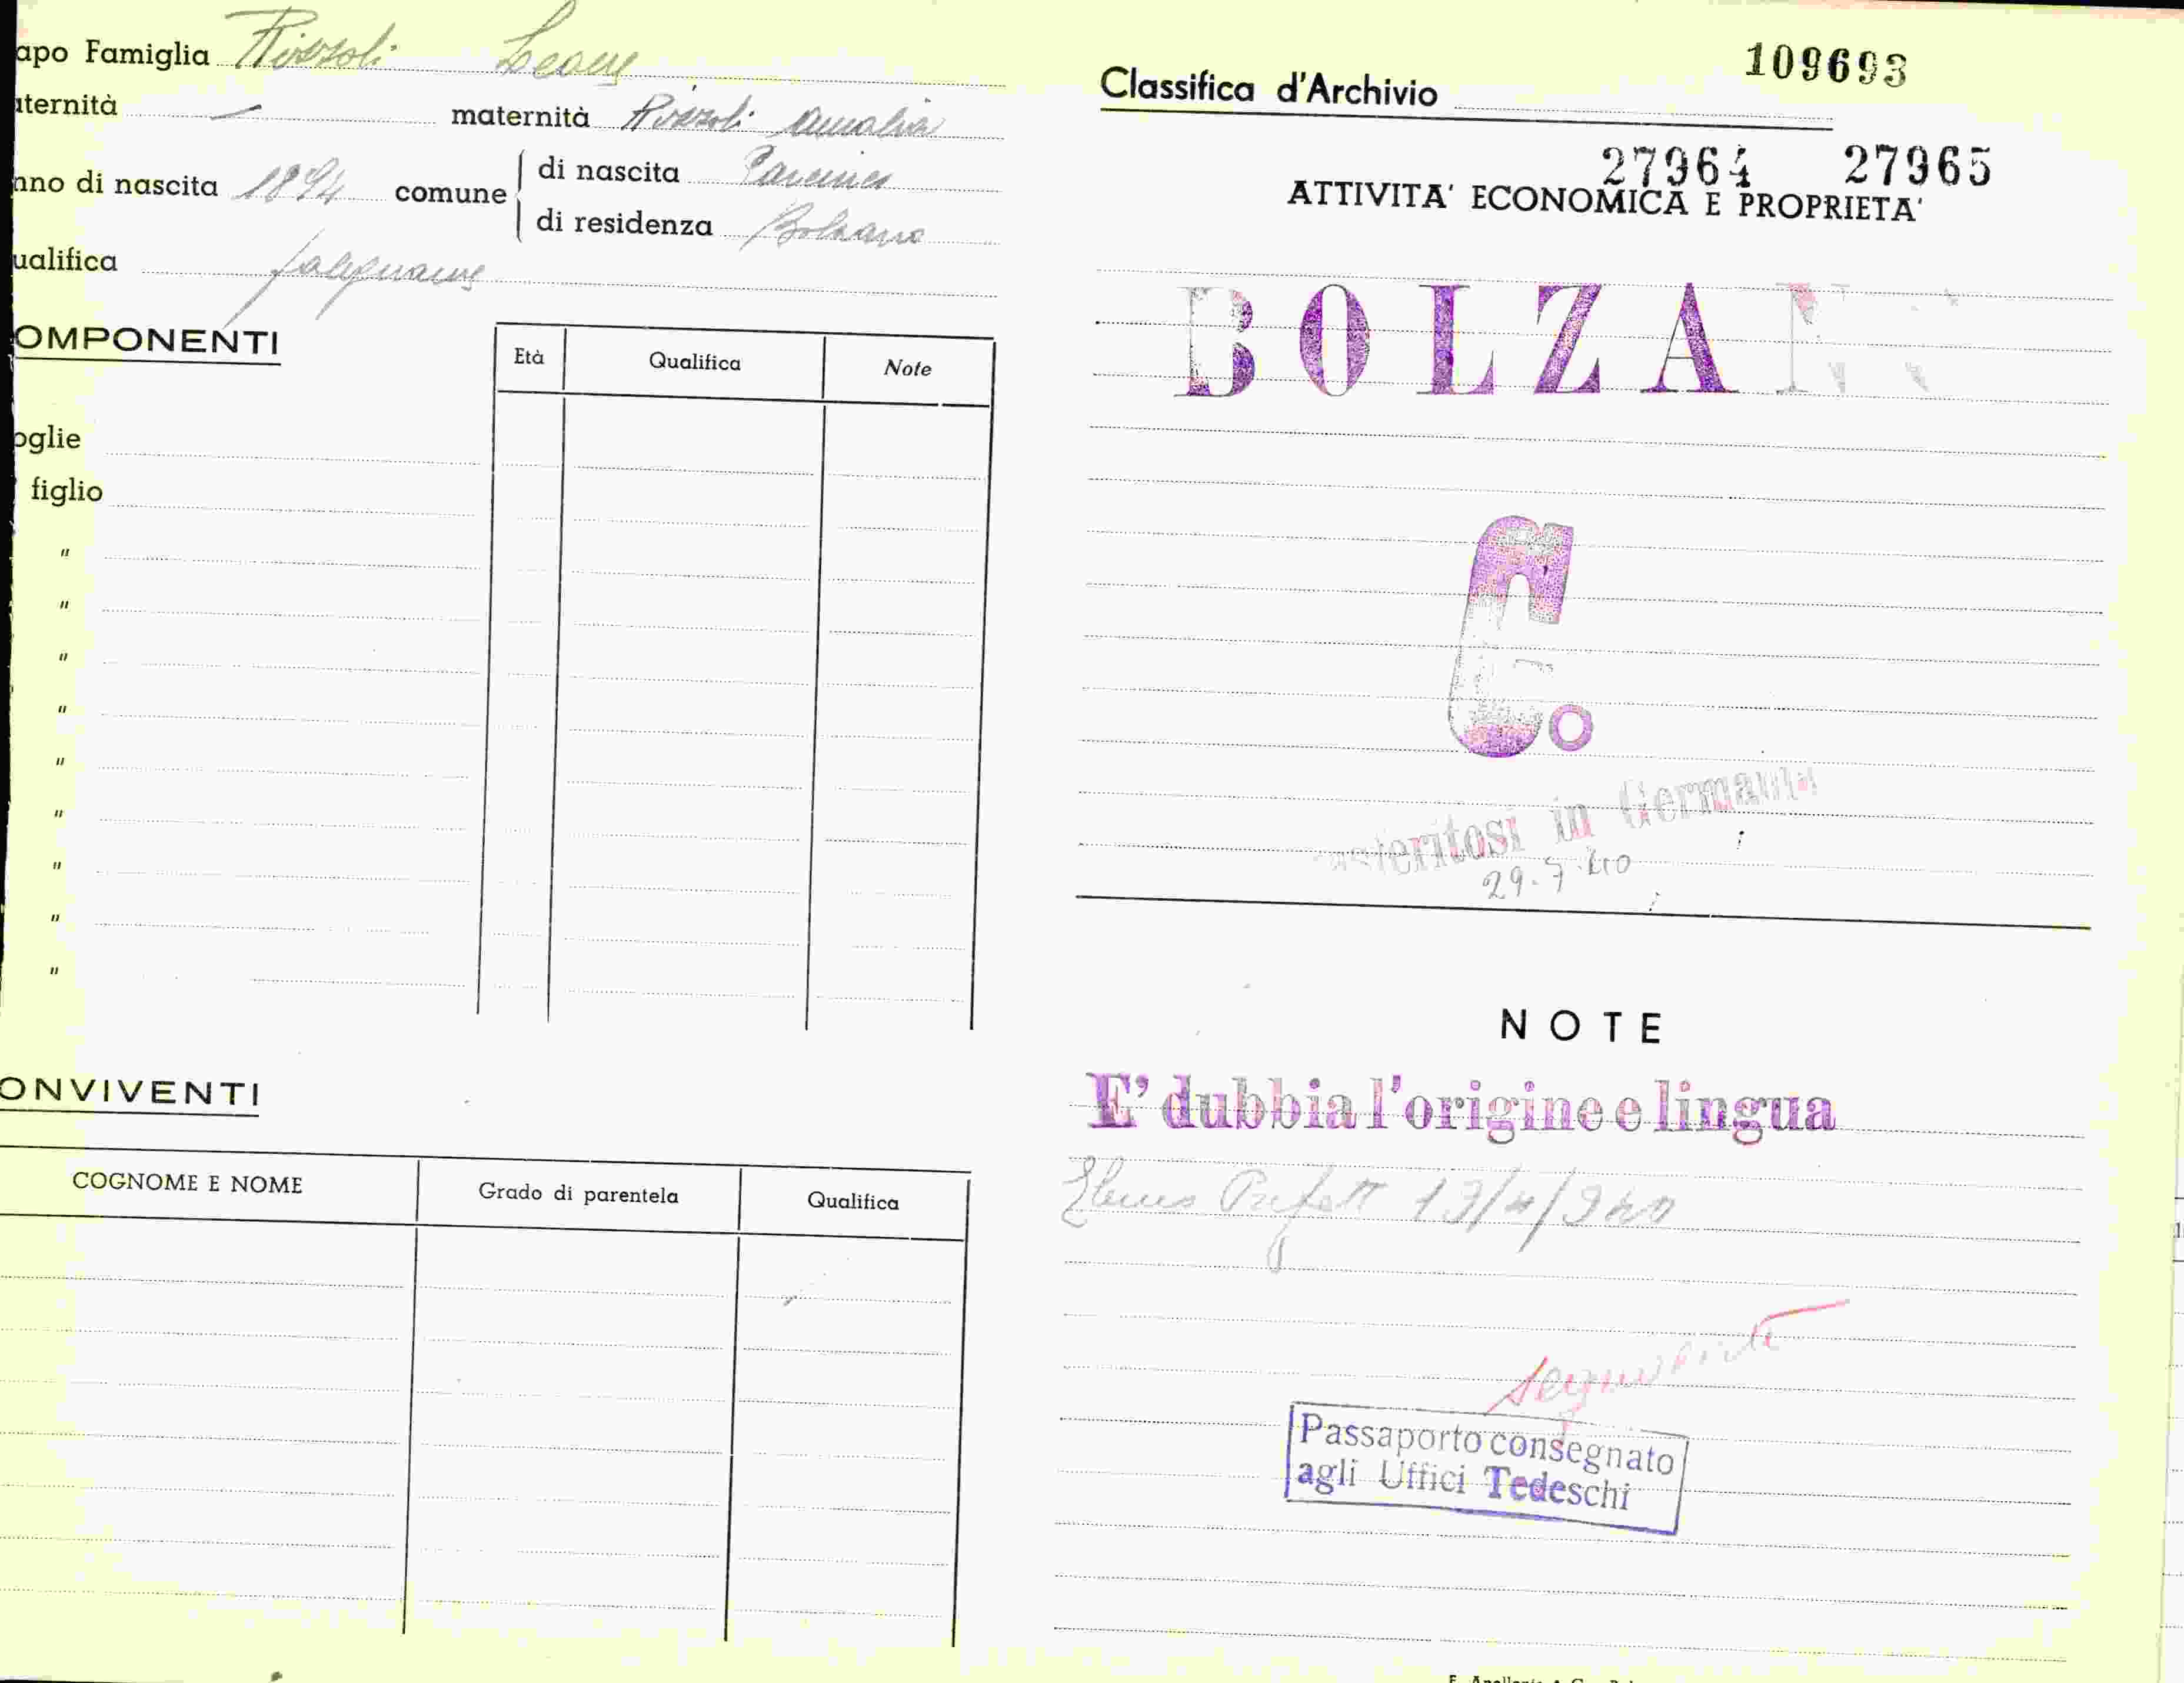 apo Famiglia Rizzoli
aternità — maternità Rizzoli Amalia
nno di nascita 1894 comune di nascita Parcines
di residenza Bolzano
ualifica falegname
OMPONENTI
Età Qualifica Note
oglie
figlio
"
"
"
"
"
"
"
"
"
ONVIVENTI
COGNOME E NOME Grado di parentela Qualifica
109693
Classifica d'Archivio
27964 27965
ATTIVITA' ECONOMICA E PROPRIETA'
BOLZAN
C.
asferitosi in Germania
29-7-40
NOTE
E' dubbia l'origine e lingua
Prefett 13/4/940
Passaporto consegnato
agli Uffici Tedeschi